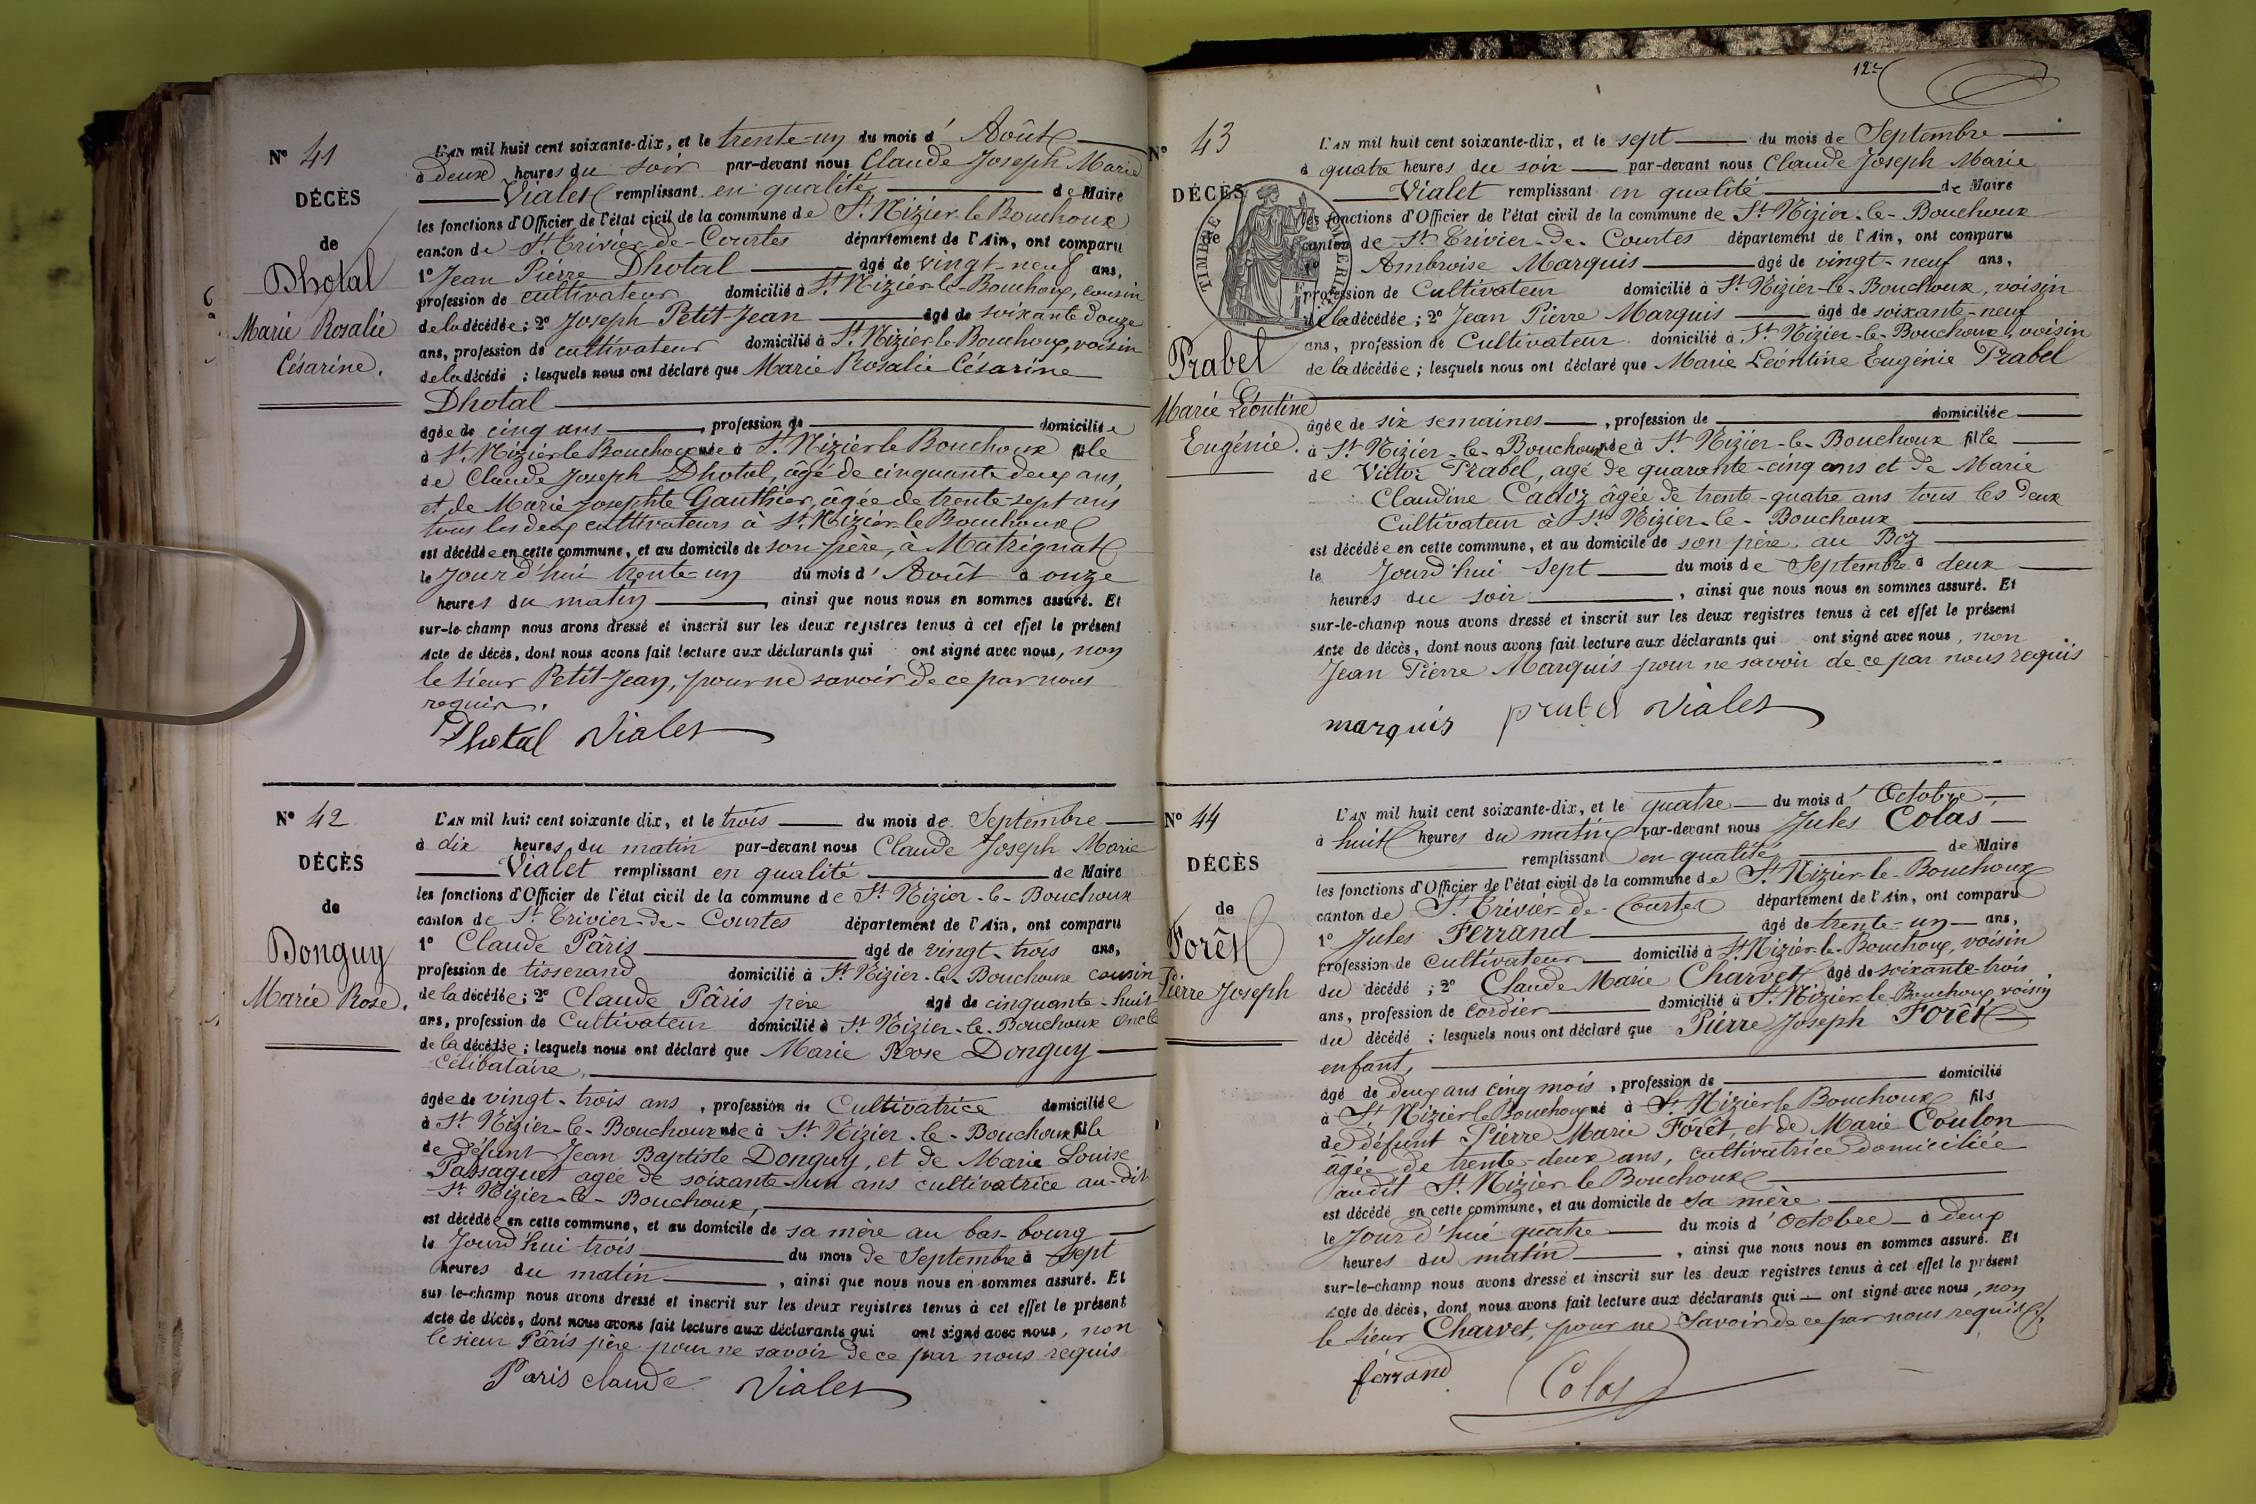 N° 41
DÉCÈS
de
Dhotal
Marie Rosalie
Césarine.
L'AN mil huit cent soixante-dix, et le trente-un du mois d' Août
à deux heures du soir par-devant nous Claude Joseph Marie
Vialet remplissant en qualité de Maire
les fonctions d'Officier de l'état civil de la commune de St Nizier le Bouchoux
canton de St Trivier-de-Courtes département de l'Ain, ont comparu
1° Jean Pierre Dhotal âgé de vingt-neuf ans,
profession de cultivateur domicilié à St Nizier-le-Bouchoux, cousin
de la décédée; 2° Joseph Petit-Jean âgé de soixante douze
ans, profession de cultivateur domicilié à St Nizier le Bouchoux, voisin
de la décédé ; lesquels nous ont déclaré que Marie Rosalie Césarine
Dhotal
âgée de cinq ans , profession de domiciliée
à St Nizier le Bouchoux née à St Nizier le Bouchoux fille
de Claude Joseph Dhotal, âgé de cinquante deux ans,
et de Marie Josephte Gauthier, âgée de trente-sept ans
tous les deux cultivateurs à St Nizier le Bouchoux
est décédée en cette commune, et au domicile de son père, à Matrignat
le jourd'hui trente-un du mois d' Août à onze
heures du matin , ainsi que nous nous en sommes assuré. Et
sur-le-champ nous avons dressé et inscrit sur les deux registres tenus à cet effet le présent
Acte de décès, dont nous avons fait lecture aux déclarants qui ont signé avec nous, non
le sieur Petit-Jean, pour ne savoir de ce par nous
requis.
Dhotal Vialet
N° 42
DÉCÈS
de
Donguy
Marie Rose.
L'AN mil huit cent soixante dix, et le trois du mois de Septembre
à dix heures du matin par-devant nous Claude Joseph Marie
Vialet remplissant en qualité de Maire
les fonctions d'Officier de l'état civil de la commune de St Nizier-le-Bouchoux
canton de St Trivier-de-Courtes département de l'Ain, ont comparu
1° Claude Pâris âgé de vingt-trois ans,
profession de tisserand domicilié à St Nizier-le-Bouchoux cousin
de la décédée; 2° Claude Pâris père âgé de cinquante-huit
ans, profession de Cultivateur domicilié à St Nizier-le-Bouchoux oncle
de la décédée; lesquels nous ont déclaré que Marie Rose Donguy
Célibataire,
âgée de vingt-trois ans , profession de Cultivatrice domiciliée
à St Nizier-le-Bouchoux née à St Nizier-le-Bouchoux fille
de défunt Jean Baptiste Donguy, et de Marie Louise
Passaquet agée de soixante-un ans cultivatrice au-dit
St Nizier-le-Bouchoux,
est décédée en cette commune, et au domicile de sa mère au bas-bourg
le jourd'hui trois du mois de Septembre à sept
heures du matin , ainsi que nous nous en sommes assuré. Et
sur le-champ nous avons dressé et inscrit sur les deux registres tenus à cet effet le présent
Acte de décès, dont nous avons fait lecture aux déclarants qui ont signé avec nous, non
le sieur Pâris père pour ne savoir de ce par nous requis
Paris claude Vialet
12
N° 43
DÉCÈS
de
TIMBRE
Prabel
Marie Léontine
Eugénie.
L'AN mil huit cent soixante-dix, et le sept du mois de Septembre
à quatre heures du soir par-devant nous Claude Joseph Marie
Vialet remplissant en qualité de Maire
les fonctions d'Officier de l'état civil de la commune de St Nizier-le-Bouchoux
canton de St Trivier-de-Courtes département de l'Ain, ont comparu
1° Ambroise Marquis âgé de vingt-neuf ans,
profession de Cultivateur domicilié à St Nizier-le-Bouchoux, voisin
de la décédée; 2° Jean Pierre Marquis âgé de soixante-neuf
ans, profession de Cultivateur domicilié à St Nizier-le-Bouchoux, voisin
de la décédée; lesquels nous ont déclaré que Marie Léontine Eugénie Prabel
âgée de six semaines , profession de domiciliée
à St Nizier-le-Bouchoux née à St Nizier-le-Bouchoux fille
de Victor Prabel, agé de quarante-cinq ans et de Marie
Claudine Cadoz âgée de trente-quatre ans tous les deux
Cultivateur à St Nizier-le-Bouchoux
est décédée en cette commune, et au domicile de son père au Boz
le jourd'hui sept du mois de Septembre à deux
heures du soir , ainsi que nous nous en sommes assuré. Et
sur-le-champ nous avons dressé et inscrit sur les deux registres tenus à cet effet le présent
Acte de décès, dont nous avons fait lecture aux déclarants qui ont signé avec nous, non
Jean Pierre Marquis pour ne savoir de ce par nous requis
marquis prabel Vialet
N° 44
DÉCÈS
de
Forêt
Pierre Joseph
L'AN mil huit cent soixante-dix, et le quatre du mois d' Octobre,
à huit heures du matin par-devant nous Jules Colas
remplissant en qualité de Maire
les fonctions d'Officier de l'état civil de la commune de St Nizier-le-Bouchoux
canton de St Trivier-de-Courtes département de l'Ain, ont comparu
1° Jules Ferrand âgé de trente-un ans,
profession de cultivateur domicilié à St Nizier-le-Bouchoux, voisin
du décédé ; 2° Claude Marie Charvet âgé de soixante-trois
ans, profession de cordier domicilié à St Nizier-le-Bouchoux, voisin
du décédé ; lesquels nous ont déclaré que Pierre Joseph Forêt
enfant,
âgé de deux ans cinq mois , profession de domicilié
à St Nizier le Bouchoux né à St Nizier le Bouchoux fils
de défunt Pierre Marie Forêt, et de Marie Coulon
âgée de trente-deux ans, cultivatrice domiciliée
audit St Nizier le Bouchoux
est décédé en cette commune, et au domicile de sa mère
le jourd'hui quatre du mois d' octobre à deux
heures du matin , ainsi que nous nous en sommes assuré. Et
sur-le-champ nous avons dressé et inscrit sur les deux registres tenus à cet effet le présent
Acte de décès, dont nous avons fait lecture aux déclarants qui ont signé avec nous, non
le sieur Charvet, pour ne savoir de ce par nous requis.
ferrand Colas